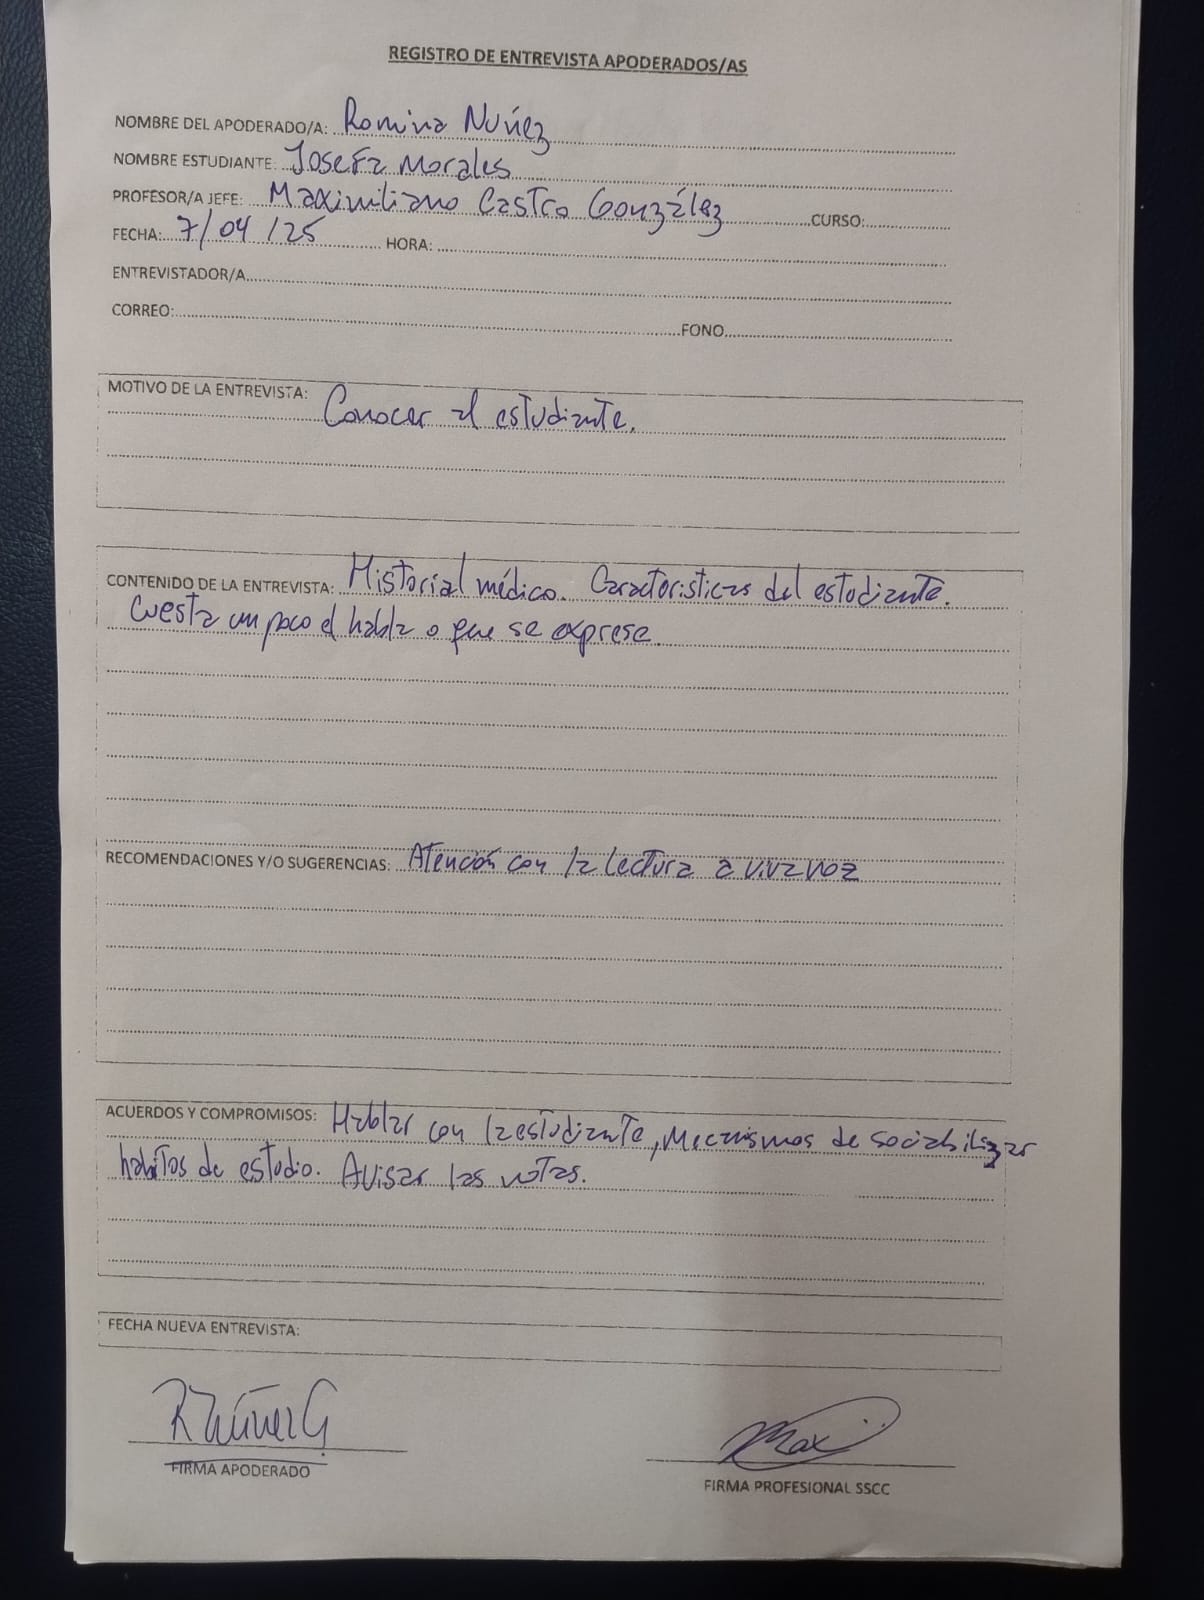 REGISTRO DE ENTREVISTA APODERADOS/AS
NOMBRE DEL APODERADO/A: Romina Nuñez
NOMBRE ESTUDIANTE: Josefa Morales
PROFESOR/A JEFE: Maximiliano Castro González CURSO:
FECHA: 7/04/25 HORA:
ENTREVISTADOR/A
CORREO: FONO
MOTIVO DE LA ENTREVISTA: Conocer al estudiante.
CONTENIDO DE LA ENTREVISTA: Historial médico. Caracteristicas del estudiante.
Cuesta un poco el habla o que se exprese.
RECOMENDACIONES Y/O SUGERENCIAS: Atención con la lectura a viva voz
ACUERDOS Y COMPROMISOS: Hablar con la estudiante, mecanismos de sociabilizar
habitos de estudio. Avisar las notas.
FECHA NUEVA ENTREVISTA:
R Núñez G
FIRMA APODERADO
Max
FIRMA PROFESIONAL SSCC